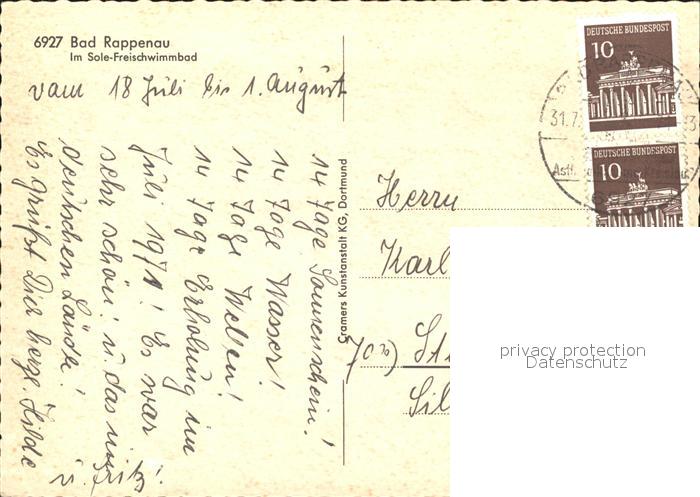 6927 Bad Rappenau
Im Sole-Freischwimmbad
vom 18 Juli bis 1. August
14 Tage Sonnenschein!
14 Tage Wasser!
14 Tage Wellen!
14 Tage Erholung im
Juli 1971! Es war
sehr schön! u. das
deutschen Lande!
Es grüßt Dich herzl. Hilde
u. Fritz!
Cramers Kunstanstalt KG, Dortmund
Herrn
Karl
70
Sil
DEUTSCHE BUNDESPOST
10
DEUTSCHE BUNDESPOST
10
31.7.
privacy protection
Datenschutz